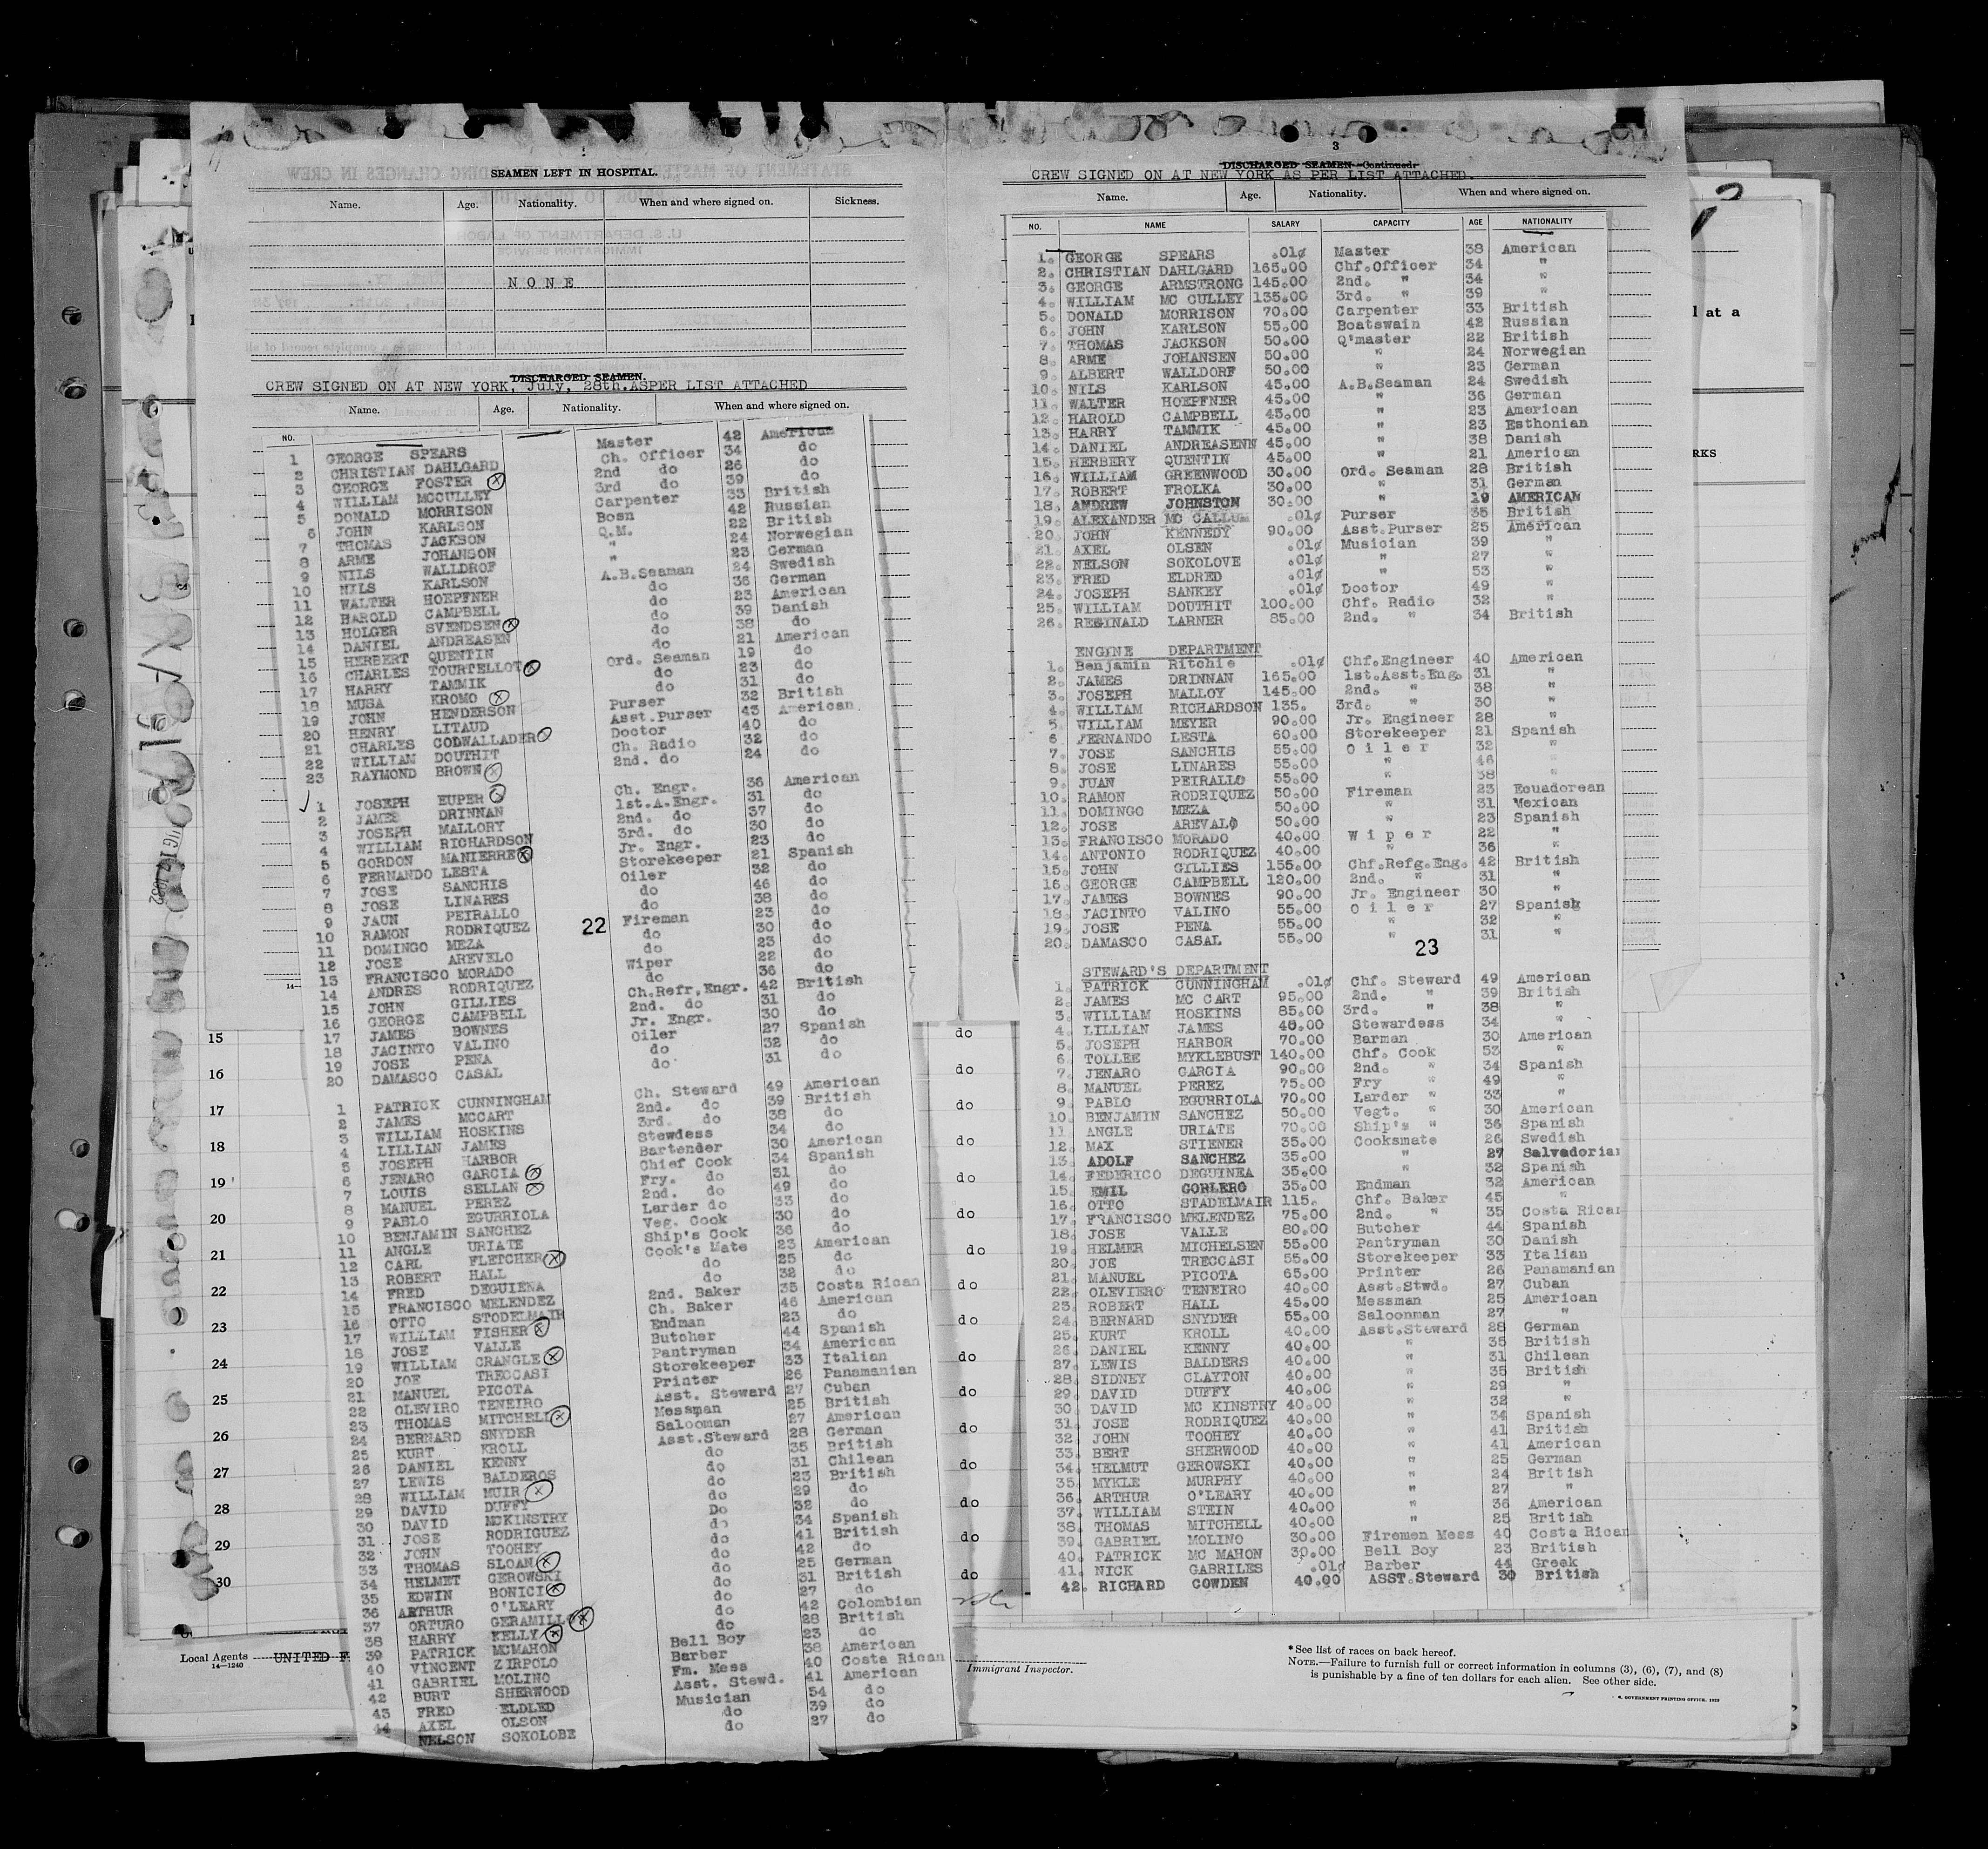 SEAMEN LEFT IN HOSPITAL.
Name. Age. Nationality. When and where signed on. Sickness.
NONE
DISCHARGED SEAMEN.
CREW SIGNED ON AT NEW YORK, July, 28th. ASPER LIST ATTACHED
Name. Age. Nationality. When and where signed on.
NO.
1 GEORGE SPEARS Master 42 American
2 CHRISTIAN DAHLGARD Ch. Officer 34 do
3 GEORGE FOSTER 2nd do 26 do
4 WILLIAM MCCULLEY 3rd do 39 do
5 DONALD MORRISON Carpenter 33 British
6 JOHN KARLSON Bosn 42 Russian
7 THOMAS JACKSON Q.M. 22 British
8 ARME JOHANSON " 24 Norwegian
9 NILS WALLDROF " 23 German
10 NILS KARLSON A.B.Seaman 24 Swedish
11 WALTER HOEPFNER do 36 German
12 HAROLD CAMPBELL do 23 American
13 HOLGER SVENDSEN do 39 Danish
14 DANIEL ANDREASEN do 38 do
15 HERBERT QUENTIN do 21 American
16 CHARLES TOURTELLOT Ord. Seaman 19 do
17 HARRY TAMMIK do 23 do
18 MUSA KROMO do 31 do
19 JOHN HENDERSON Purser 32 British
20 HENRY LITAUD Asst.Purser 43 American
21 CHARLES CODWALLADER Doctor 40 do
22 WILLIAM DOUTHIT Ch. Radio 32 do
23 RAYMOND BROWN 2nd. do 24 do
1 JOSEPH EUPER Ch. Engr. 36 American
2 JAMES DRINNAN 1st.A.Engr. 31 do
3 JOSEPH MALLORY 2nd. do 37 do
4 WILLIAM RICHARDSON 3rd. do 30 do
5 GORDON MANIERRE Jr. Engr. 23 do
6 FERNANDO LESTA Storekeeper 21 Spanish
7 JOSE SANCHIS Oiler 32 do
8 JOSE LINARES do 46 do
9 JAUN PEIRALLO do 38 do
10 RAMON RODRIQUEZ 22 Fireman 23 do
11 DOMINGO MEZA do 30 do
12 JOSE AREVELO do 23 do
13 FRANCISCO MORADO Wiper 22 do
14 ANDRES RODRIQUEZ do 36 do
15 JOHN GILLIES Ch.Refr.Engr. 42 British
16 GEORGE CAMPBELL 2nd. do 31 do
17 JAMES BOWNES Jr. Engr. 30 do
18 JACINTO VALINO Oiler 27 Spanish
19 JOSE PENA do 32 do
20 DAMASCO CASAL do 31 do
1 PATRICK CUNNINGHAM Ch. Steward 49 American
2 JAMES MCCART 2nd. do 39 British
3 WILLIAM HOSKINS 3rd. do 38 do
4 LILLIAN JAMES Stewdess 34 do
5 JOSEPH HARBOR Bartender 30 American
6 JENARO GARCIA Chief Cook 34 Spanish
7 LOUIS SELLAN Fry. do 31 do
8 MANUEL PEREZ 2nd. do 49 do
9 PABLO EGURRIOLA Larder do 33 do
10 BENJAMIN SANCHEZ Veg. Cook 30 do
11 ANGLE URIATE Ship's Cook 36 do
12 CARL FLETCHER Cook's Mate 23 American
13 ROBERT HALL do 25 do
14 FRED DEGUIENA do 32 do
15 FRANCISCO MELENDEZ 2nd. Baker 35 Costa Rican
16 OTTO STODELMAIR Ch. Baker 46 American
17 WILLIAM FISHER Endman 23 do
18 JOSE VALLE Butcher 44 Spanish
19 WILLIAM CRANGLE Pantryman 34 American
20 JOE TRECCASI Storekeeper 33 Italian
21 MANUEL PICOTA Printer 26 Panamanian
22 OLEVIRO TENEIRO Asst. Steward 27 Cuban
23 THOMAS MITCHELL Messman 25 British
24 BERNARD SNYDER Salooman 27 American
25 KURT KROLL Asst.Steward 28 German
26 DANIEL KENNY do 35 British
27 LEWIS BALDEROS do 31 Chilean
28 WILLIAM MUIR do 23 British
29 DAVID DUFFY do 29 do
30 DAVID MCKINSTRY Do 32 do
31 JOSE RODRIGUEZ do 34 Spanish
32 JOHN TOOHEY do 41 British
33 THOMAS SLOAN do 42 do
34 HELMET GEROWSKI do 25 German
35 EDWIN BONICI do 31 British
36 ARTHUR O'LEARY do 27 do
37 ORTURO GERAMILLO do 42 Colombian
38 HARRY KELLY do 28 British
39 PATRICK MCMAHON Bell Boy 23 do
40 VINCENT ZIRPOLO Barber 38 American
41 GABRIEL MOLINO Fm. Mess 40 Costa Rican
42 BURT SHERWOOD Asst. Stewd. 41 American
43 FRED ELDLED Musician 54 do
44 AXEL OLSON do 39 do
NELSON SOKOLOBE do 27 do
3
DISCHARGED SEAMEN—Continued.
CREW SIGNED ON AT NEW YORK AS PER LIST ATTACHED.
Name. Age. Nationality. When and where signed on.
NO. NAME SALARY CAPACITY AGE NATIONALITY
1. GEORGE SPEARS .01¢ Master 38 American
2. CHRISTIAN DAHLGARD 165.00 Chf.Officer 34 "
3. GEORGE ARMSTRONG 145.00 2nd. " 34 "
4. WILLIAM MC CULLEY 135.00 3rd. " 39 "
5. DONALD MORRISON 70.00 Carpenter 33 British
6. JOHN KARLSON 55.00 Boatswain 42 Russian
7. THOMAS JACKSON 50.00 Q'master 22 British
8. ARME JOHANSEN 50.00 " 24 Norwegian
9. ALBERT WALLDORF 50.00 " 23 German
10. NILS KARLSON 45.00 A.B.Seaman 24 Swedish
11. WALTER HOEPFNER 45.00 " 36 German
12. HAROLD CAMPBELL 45.00 " 23 American
13. HARRY TAMMIK 45.00 " 23 Esthonian
14. DANIEL ANDREASENN 45.00 " 38 Danish
15. HERBERY QUENTIN 45.00 " 21 American
16. WILLIAM GREENWOOD 30.00 Ord. Seaman 28 British
17. ROBERT FROLKA 30.00 " 31 German
18. ANDREW JOHNSTON 30.00 " 19 AMERICAN
19. ALEXANDER MC CALLUM .01¢ Purser 35 British
20. JOHN KENNEDY 90.00 Asst.Purser 25 American
21. AXEL OLSEN .01¢ Musician 39 "
22. NELSON SOKOLOVE .01¢ " 27 "
23. FRED ELDRED .01¢ " 53 "
24. JOSEPH SANKEY .01¢ Doctor 49 "
25. WILLIAM DOUTHIT 100.00 Chf. Radio 32 "
26. REGINALD LARNER 85.00 2nd. " 34 British
ENGINE DEPARTMENT
1. Benjamin Ritchie .01¢ Chf.Engineer 40 American
2. JAMES DRINNAN 165.00 1st.Asst.Eng. 31 "
3. JOSEPH MALLOY 145.00 2nd. " 38 "
4. WILLIAM RICHARDSON 135. 3rd. " 30 "
5. WILLIAM MEYER 90.00 Jr. Engineer 28 "
6 FERNANDO LESTA 60.00 Storekeeper 21 Spanish
7. JOSE SANCHIS 55.00 Oiler 32 "
8. JOSE LINARES 55.00 " 46 "
9. JUAN PEIRALLO 55.00 " 38 "
10. RAMON RODRIQUEZ 50.00 Fireman 23 Ecuadorean
11. DOMINGO MEZA 50.00 " 31 Mexican
12. JOSE AREVALO 50.00 " 23 Spanish
13. FRANCISCO MORADO 40.00 Wiper 22 "
14. ANTONIO RODRIQUEZ 40.00 " 36 "
15. JOHN GILLIES 155.00 Chf.Refg.Eng. 42 British
16. GEORGE CAMPBELL 120.00 2nd. " 31 "
17. JAMES BOWNES 90.00 Jr. Engineer 30 "
18. JACINTO VALINO 55.00 Oiler 27 Spanish
19. JOSE PENA 55.00 " 32 "
20. DAMASCO CASAL 55.00 " 31 "
23
STEWARD'S DEPARTMENT
1. PATRICK CUNNINGHAM .01¢ Chf. Steward 49 American
2. JAMES MC CART 95.00 2nd. " 39 British
3. WILLIAM HOSKINS 85.00 3rd. " 38 "
4. LILLIAN JAMES 40.00 Stewardess 34 "
5. JOSEPH HARBOR 70.00 Barman 30 American
6. TOLLEE MYKLEBUST 140.00 Chf. Cook 53 "
7. JENARO GARCIA 90.00 2nd. " 34 Spanish
8. MANUEL PEREZ 75.00 Fry " 49 "
9. PABLO EGURRIOLA 70.00 Larder " 33 "
10. BENJAMIN SANCHEZ 50.00 Vegt. " 30 American
11 ANGLE URIATE 70.00 Ship's " 36 Spanish
12. MAX STIENER 35.00 Cooksmate 26 Swedish
13. ADOLF SANCHEZ 35.00 " 27 Salvadorian
14. FEDERICO DEGUINEA 35.00 " 32 Spanish
15. EMIL GORLERO 35.00 Endman 32 American
16. OTTO STADELMAIR 115. Chf. Baker 45 "
17. FRANCISCO MELENDEZ 75.00 2nd. " 35 Costa Rican
18. JOSE VALLE 80.00 Butcher 44 Spanish
19. HELMER MICHELSEN 55.00 Pantryman 30 Danish
20. JOE TRECCASI 55.00 Storekeeper 33 Italian
21. MANUEL PICOTA 65.00 Printer 26 Panamanian
22. OLEVIERO TENEIRO 40.00 Asst.Stwd. 27 Cuban
23. ROBERT HALL 45.00 Messman 25 American
24. BERNARD SNYDER 55.00 Saloonman 27 "
25. KURT KROLL 40.00 Asst.Steward 28 German
26. DANIEL KENNY 40.00 " 35 British
27. LEWIS BALDERS 40.00 " 31 Chilean
28. SIDNEY CLAYTON 40.00 " 35 British
29. DAVID DUFFY 40.00 " 29 "
30. DAVID MC KINSTRY 40.00 " 32 "
31. JOSE RODRIQUEZ 40.00 " 34 Spanish
32. JOHN TOOHEY 40.00 " 41 British
33. BERT SHERWOOD 40.00 " 41 American
34. HELMUT GEROWSKI 40.00 " 25 German
35. MYKLE MURPHY 40.00 " 24 British
36. ARTHUR O'LEARY 40.00 " 27 "
37. WILLIAM STEIN 40.00 " 36 American
38. THOMAS MITCHELL 40.00 " 25 British
39. GABRIEL MOLINO 30.00 Firemen Mess 40 Costa Rican
40. PATRICK MC MAHON 30.00 Bell Boy 23 British
41. NICK GABRILES .01¢ Barber 44 Greek
42. RICHARD COWDEN 40.00 ASST.Steward 30 British
15 do
16 do
17 do
18 do
19 do
20 do
21 do
22 do
23 do
24 do
25 do
26 do
27 do
28 do
29 do
30 do
l at a
RKS
Local Agents UNITED F
14—1240
Immigrant Inspector.
*See list of races on back hereof.
NOTE.—Failure to furnish full or correct information in columns (3), (6), (7), and (8)
is punishable by a fine of ten dollars for each alien. See other side.
GOVERNMENT PRINTING OFFICE